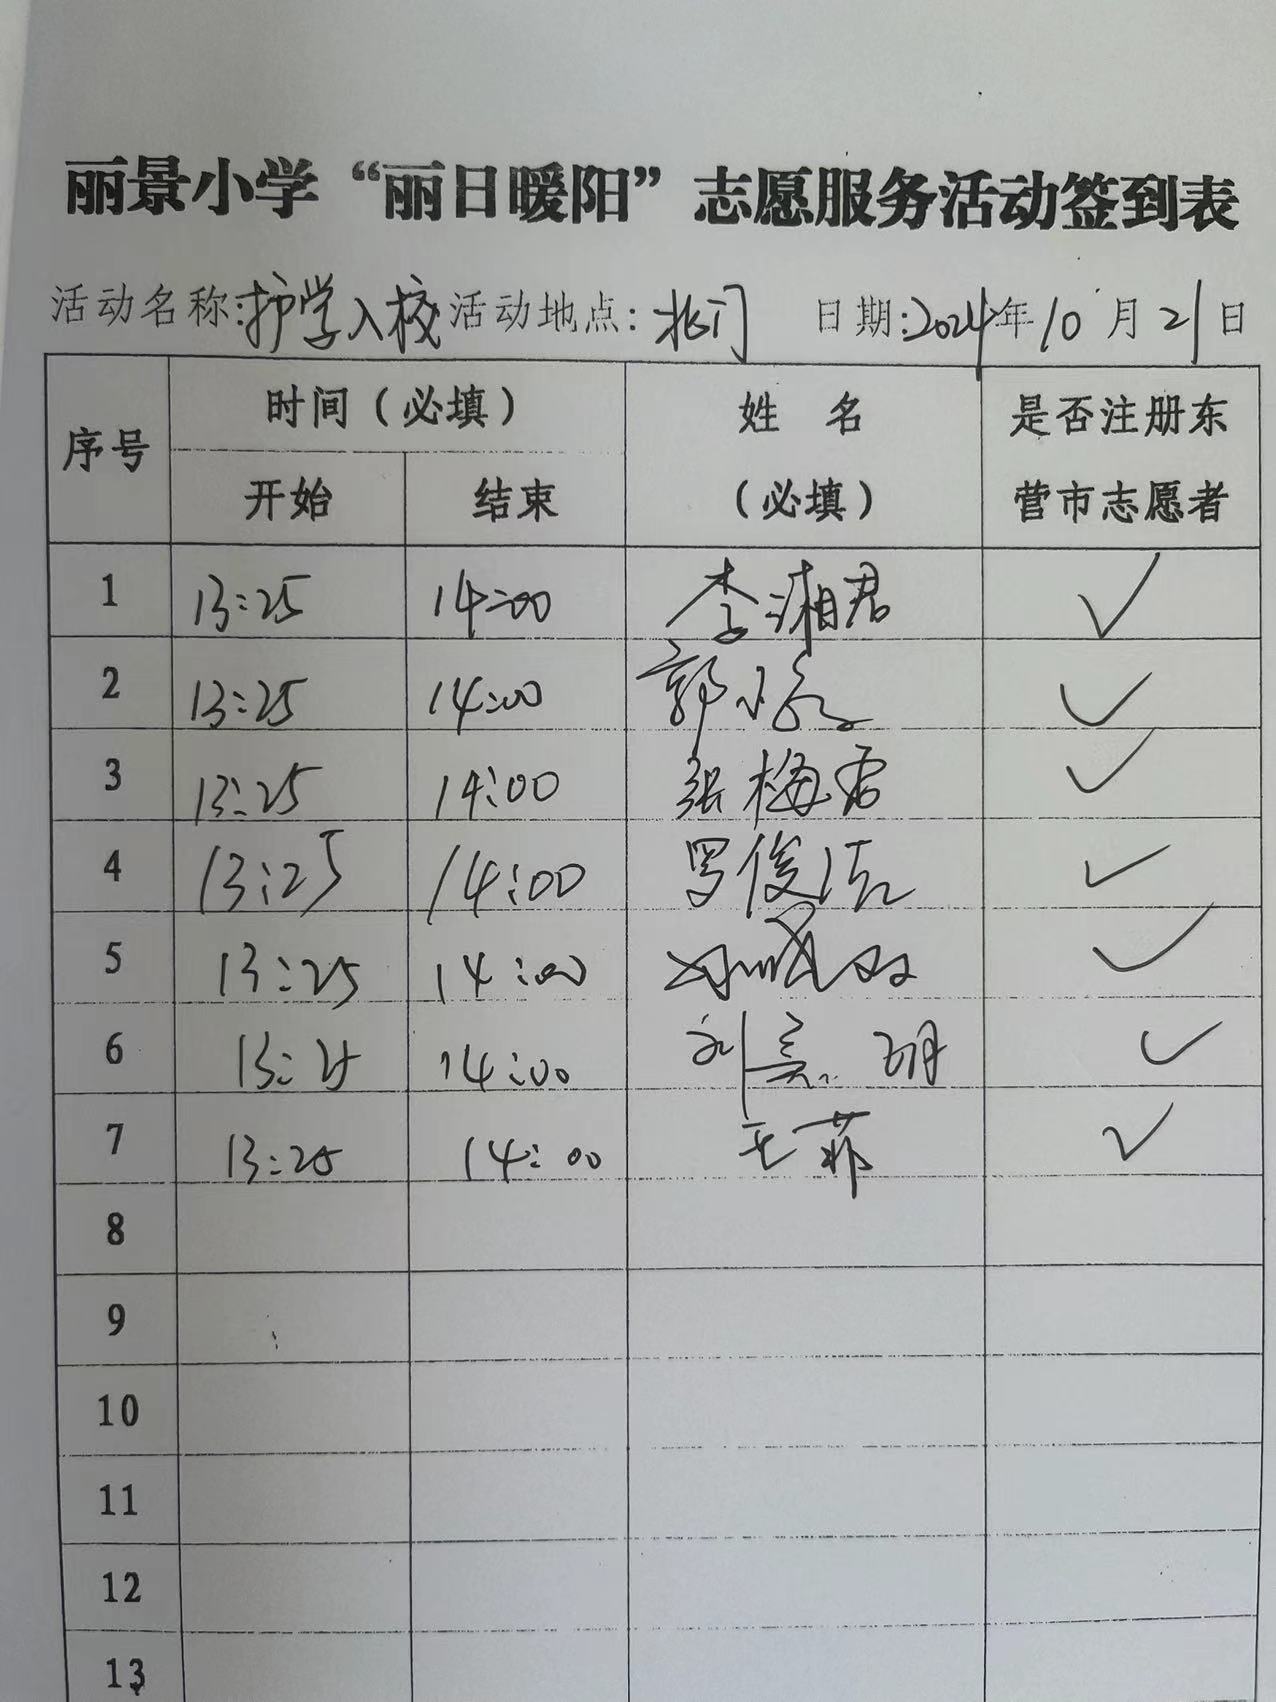 丽景小学“丽日暖阳”志愿服务活动签到表
活动名称:护学入校 活动地点:北门 日期:2024年10月21日
序号 时间（必填） 姓 名（必填） 是否注册东营市志愿者
开始 结束
1 13:25 14:00 李湘君 ✓
2 13:25 14:00 郭小 ✓
3 13:25 14:00 张梅君 ✓
4 13:25 14:00 罗俊 ✓
5 13:25 14:00 ✓
6 13:25 14:00 刘 明 ✓
7 13:25 14:00 王菲 ✓
8
9
10
11
12
13